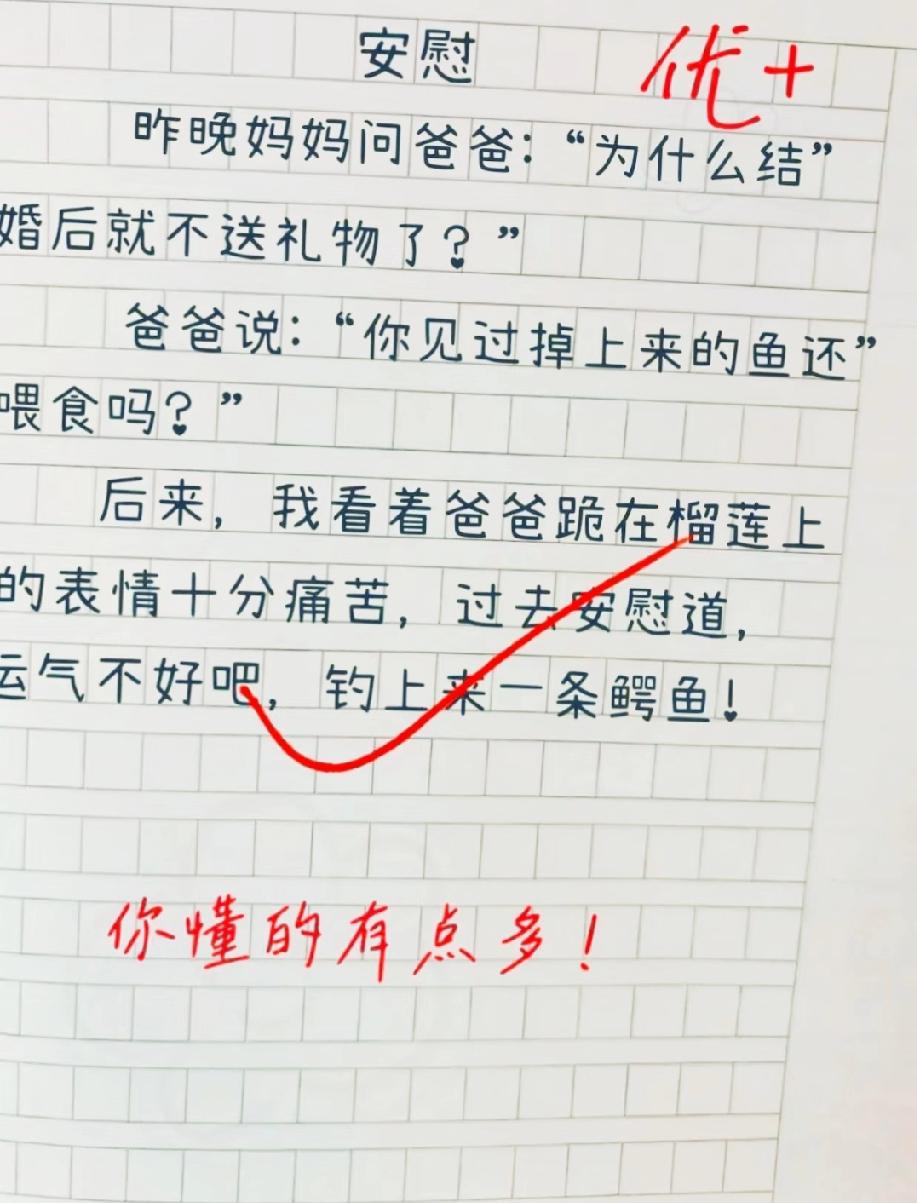 安慰
优+
昨晚妈妈问爸爸：“为什么结”
婚后就不送礼物了？”
爸爸说：“你见过掉上来的鱼还”
喂食吗？”
后来，我看着爸爸跪在榴莲上
的表情十分痛苦，过去安慰道，
运气不好吧，钓上来一条鳄鱼！
你懂的有点多！